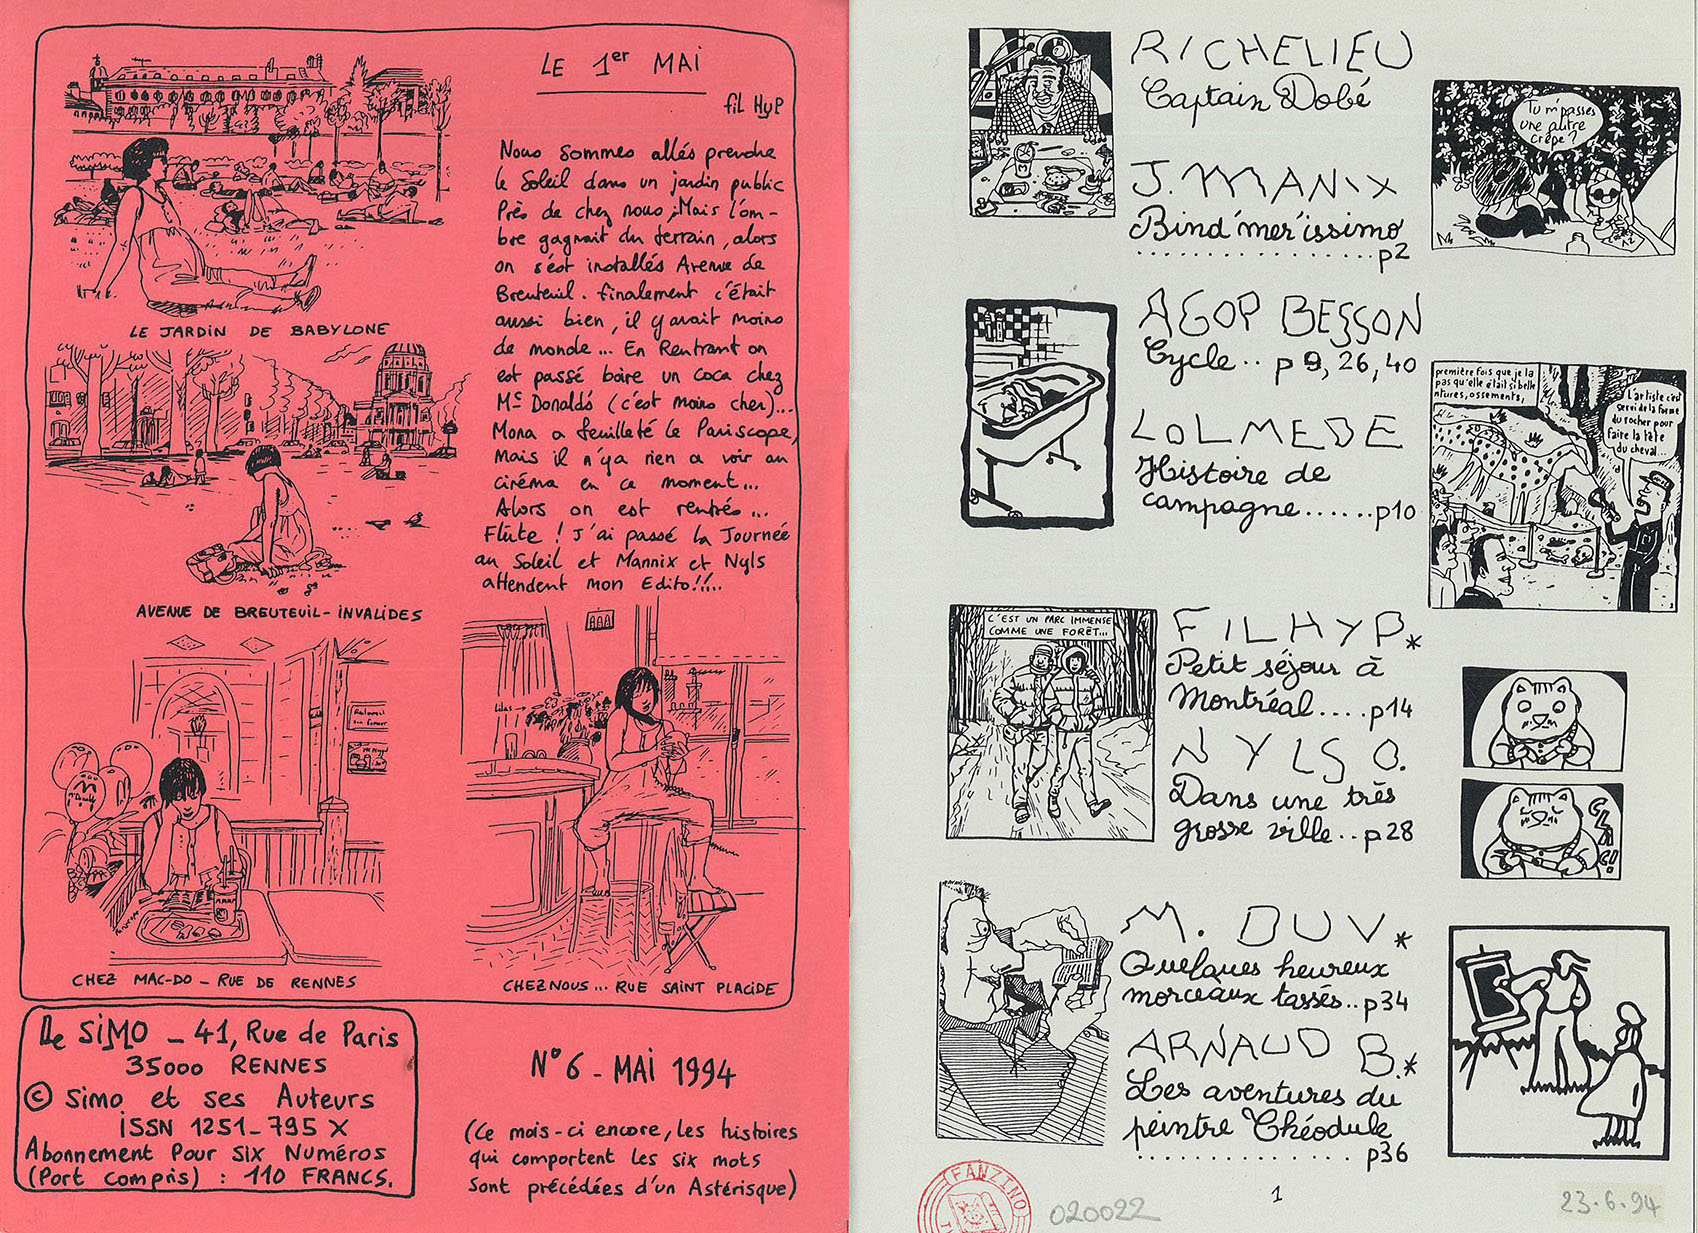 LE 1er MAI
fil HyP
Nous sommes allés prendre
le Soleil dans un jardin public
Près de chez nous, Mais l'om-
bre gagnait du terrain, alors
on s'est installés Avenue de
Breuteuil. finalement c'était
aussi bien, il y avait moins
de monde... En Rentrant on
est passé boire un coca chez
Mc Donald's (c'est moins cher)...
Mona a feuilleté le Pariscope,
Mais il n'ya rien a voir au
cinéma en ce moment...
Alors on est rentrés...
Flûte ! J'ai passé la Journée
au Soleil et Mannix et Nyls
attendent mon Edito!!....
LE JARDIN DE BABYLONE
AVENUE DE BREUTEUIL - INVALIDES
Lilas
CHEZ MAC-DO - RUE DE RENNES
CHEZ NOUS... RUE SAINT PLACIDE
Le SiMO - 41, Rue de Paris
35000 RENNES
© Simo et ses Auteurs
ISSN 1251-795 X
Abonnement Pour Six Numéros
(Port compris) : 110 FRANCS.
N° 6 - MAI 1994
(Ce mois-ci encore, les histoires
qui comportent les six mots
sont précédées d'un Astérisque)
RICHELIEU
Captain Dobé
J. MANIX
Bind'mer'issimo
.................p2
Tu m'passes
une autre
crêpe ?
AGOP BESSON
Cycle.. p 9, 26, 40
LOLMEDE
Histoire de
campagne......p10
première fois que je la
pas qu'elle était si belle
ntures, ossements,
L'artiste s'est
servi de la forme
du rocher pour
faire la tête
du cheval...
C'EST UN PARC IMMENSE
COMME UNE FORÊT...
FILHYP.*
Petit séjour à
Montréal.....p14
NYLSO.
Dans une très
grosse ville..p28
CLAC!
M. DUV.*
Quelques heureux
morceaux tassés..p34
ARNAUD B.*
Les aventures du
peintre Théodule
...............p36
FANZINO
020022
1
23.6.94